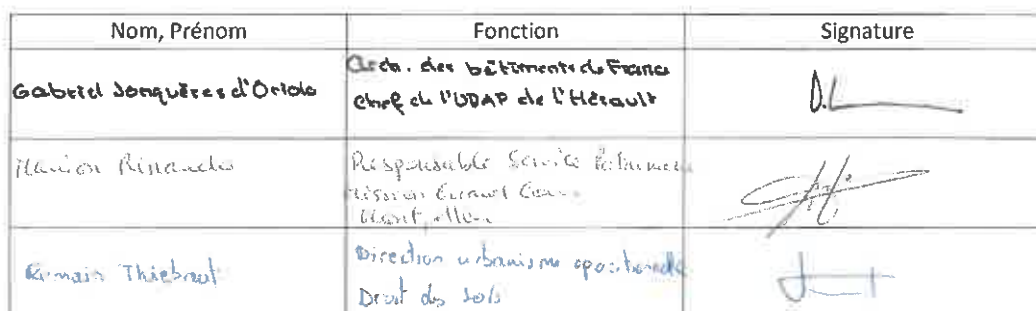 Nom, Prénom
Fonction
Signature
Gabriel Jonquères d'Oriola
Arch. des bâtiments de France
Chef de l'UDAP de l'Hérault
Marion
Responsable Service Patrimoine
Mission Grand
Romain Thiebaut
Direction urbanisme opérationnelle
Droit des Sols